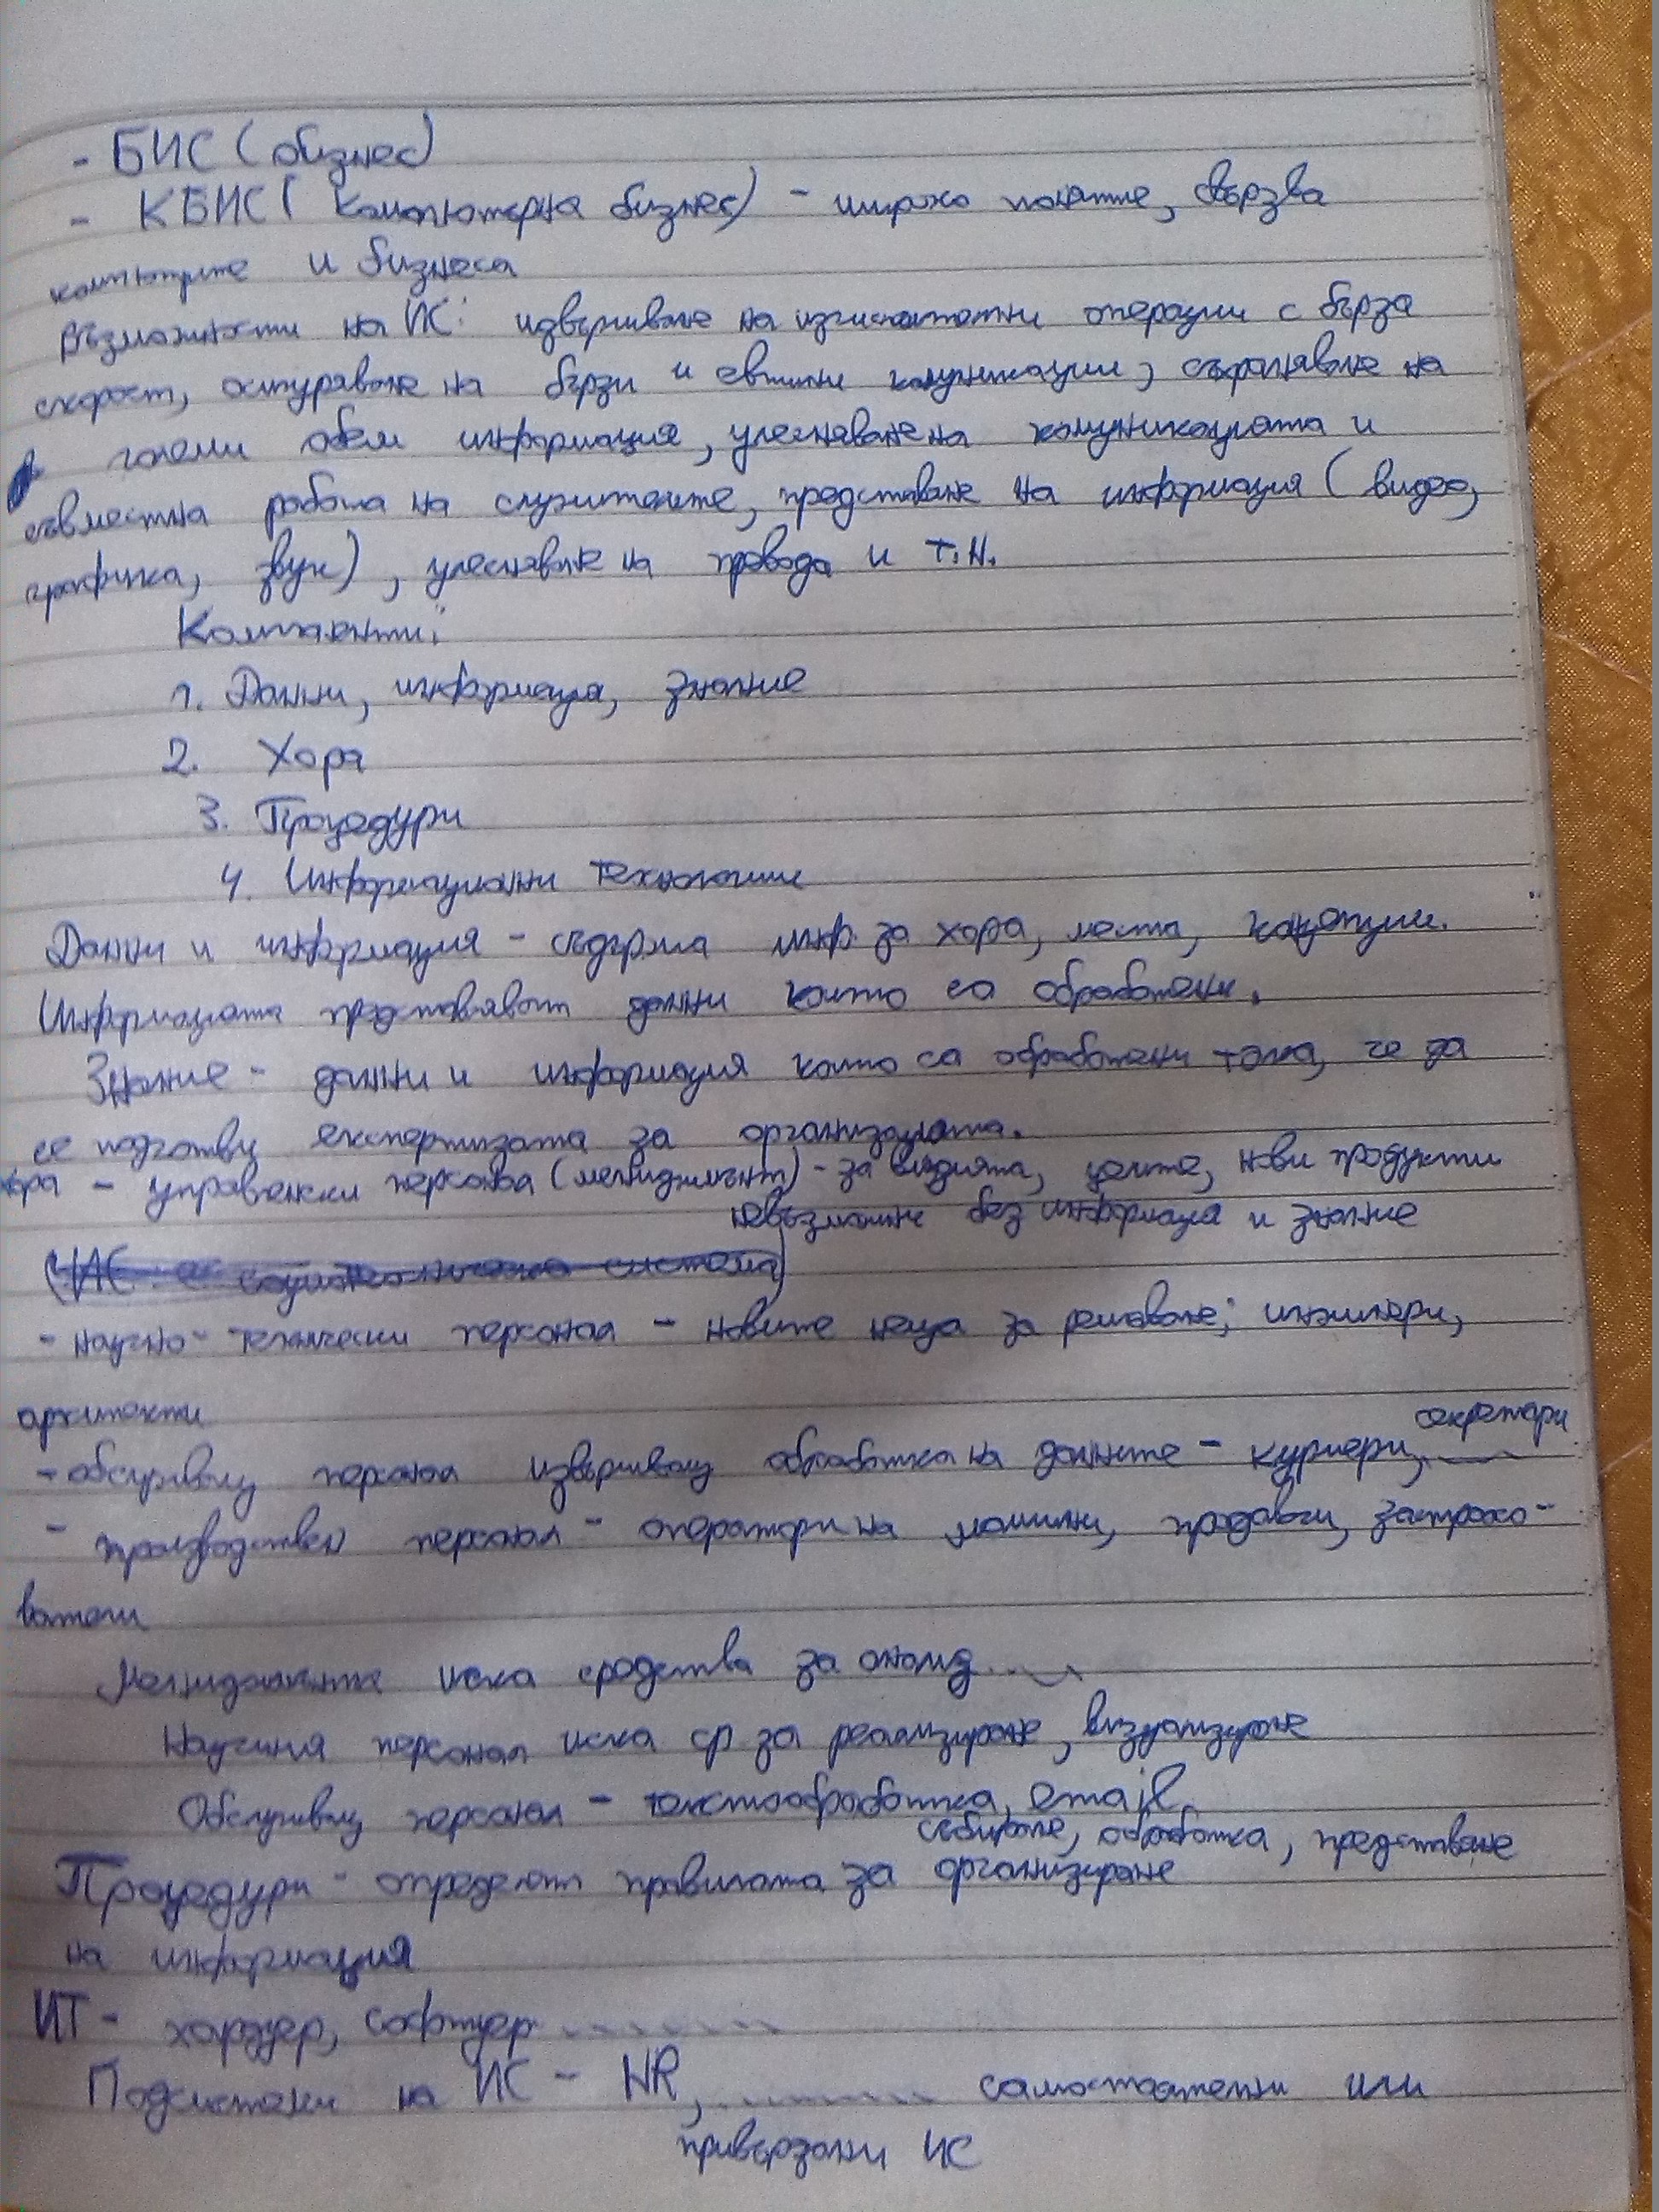 - БИС (бизнес)
- КБИС (Компютърна бизнес) - широко понятие, свързва
компютрите и бизнеса
Възможности на ИС: извършване на изчислителни операции с бърза
скорост, осигуряване на бързи и евтини комуникации, съхраняване на
големи обем информация, улесняване на комуникацията и
съвместна работа на служителите, представяне на информация (видео,
графика, звук), улесняване на превода и т.н.
Компоненти:
1. Данни, информация, знание
2. Хора
3. Процедури
4. Информационни технологии
Данни и информация - съдържа инф. за хора, места, концепции.
Информацията представляват данни които са обработени.
Знание - данни и информация които са обработени така, че да
се подготви експертизата за организацията.
хора - управленски персонал (мениджмънт) - за визията, целите, нови продукти
невъзможни без информация и знание
(ИС социотехническа система)
- научно-технически персонал - новите неща за решаване; инженери,
архитекти
секретари
- обслужващ персонал извършващ обработка на данните - куриери,
- производствен персонал - оператори на машини, продавачи, застрахо-
ватели
Мениджмънта иска средства за анализ...
Научния персонал иска ср за реализиране, визуализиране
Обслужващ персонал - текстообработка, email
събиране, обработка, представяне
Процедури - определят правилата за организиране
на информация
ИТ - хардуер, софтуер .......
Подсистеми на ИС - HR, ........ самостоятелни или
привързани ИС